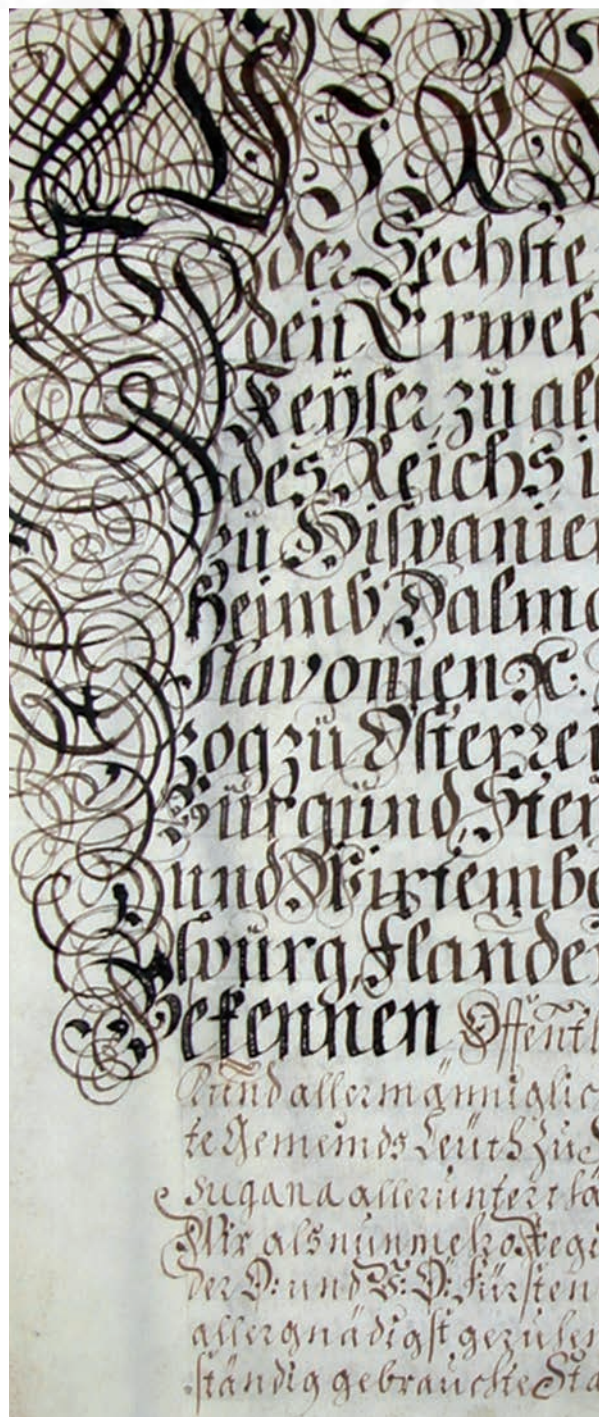 WIR
der Sechste
den Erweh
Keÿser, zü all
des Reichs, i
zü Hispanien
heimb, Dalma
Slavonien ꝛc.
zog zü Österrei
Bürgünd, Steÿ
und Wirtembe
bspürg, Flander
Bekennen Öffentl
Kund allermänniglic
te Gemeinds Leüth zu
sugana allerunterthä
Wir als nunmehro Regi
der O: und V: Ö: Fürsten
allergnädigst geruhen
ständig gebrauchte Sta